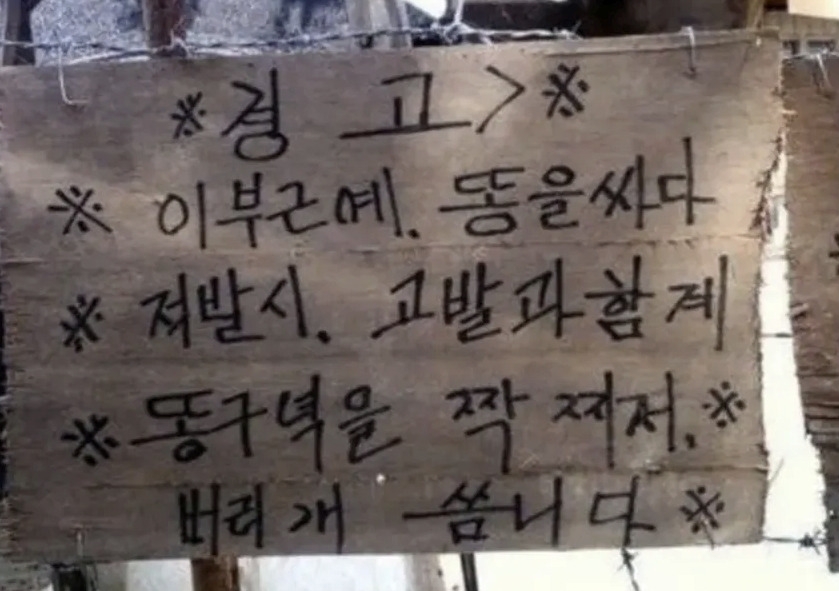 ※경 고>※
※ 이부근에. 똥을싸다
※ 적발시. 고발과함게
※ 똥구녁을 짝 찌저.※
버리개 씀니다※